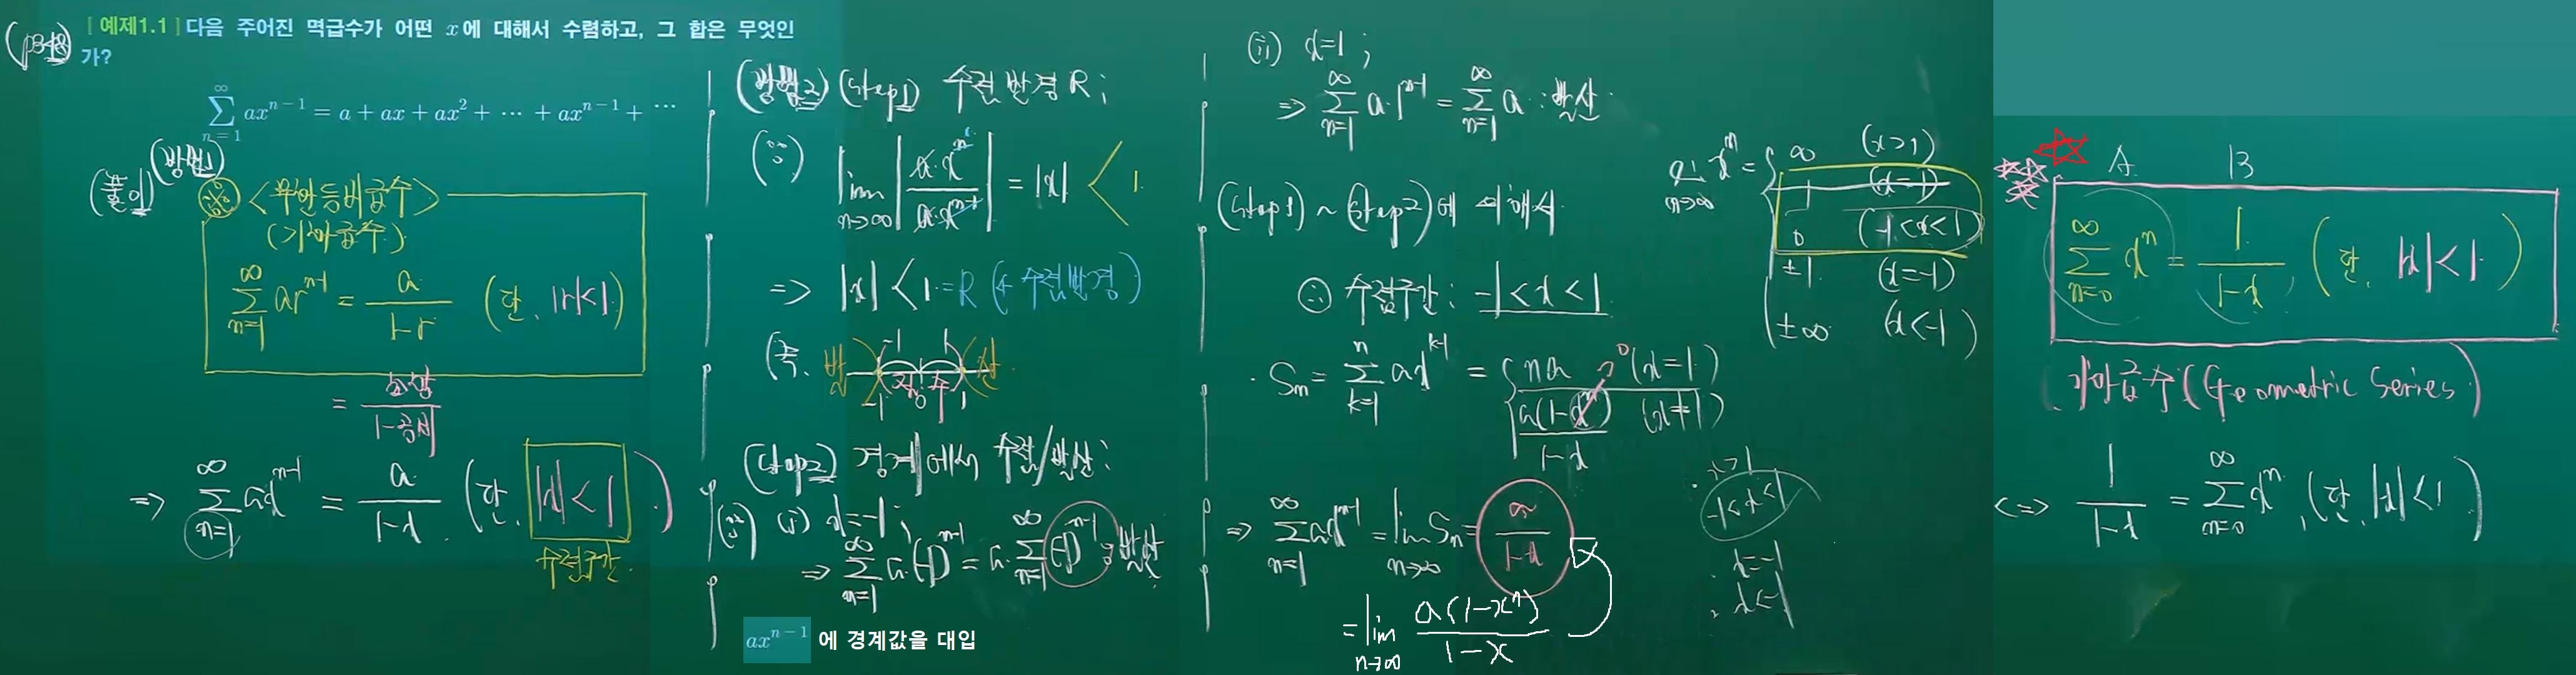 (p348)
[ 예제1.1 ] 다음 주어진 멱급수가 어떤 x에 대해서 수렴하고, 그 합은 무엇인
가?
∑_{n=1}^{∞} ax^{n-1} = a + ax + ax² + ⋯ + ax^{n-1} + ⋯
(풀이) (방법1)
※ <무한등비급수>
(기하급수)
∑_{n=1}^{∞} ar^{n-1} = a/(1-r) (단, |r|<1)
= 초항/(1-공비)
⇒ ∑_{n=1}^{∞} ax^{n-1} = a/(1-x) (단, |x|<1)
수렴구간
(방법2) (Step1) 수렴반경 R ;
(∵) lim_{n→∞} |a·x^n / a·x^{n-1}| = |x| < 1
⇒ |x| < 1 = R (← 수렴반경)
(즉, 발 -1 수렴 1 산
-1 0 1
(Step2) 경계에서 수렴/발산 ;
(∵) (i) x=-1 ;
⇒ ∑_{n=1}^{∞} a·(-1)^{n-1} = a·∑_{n=1}^{∞} (-1)^{n-1} ; 발산
ax^{n-1} 에 경계값을 대입
(ii) x=1 ;
⇒ ∑_{n=1}^{∞} a·1^{n-1} = ∑_{n=1}^{∞} a : 발산
(Step1) ~ (Step2)에 의해서
∴ 수렴구간 : -1 < x < 1
· S_n = ∑_{k=1}^{n} ax^{k-1} = { na (x=1)
a(1-x^n)/(1-x) (x≠1)
0
⇒ ∑_{n=1}^{∞} ax^{n-1} = lim_{n→∞} S_n = a/(1-x)
= lim_{n→∞} a(1-x^n)/(1-x)
lim_{n→∞} x^n = { ∞ (x>1)
1 (x=1)
0 (-1<x<1)
±1 (x=-1)
±∞ (x<-1)
· x>1
-1<x<1
· x=-1
· x<-1
A B
∑_{n=0}^{∞} x^n = 1/(1-x) (단, |x|<1)
(기하급수 (Geometric Series)
⇔ 1/(1-x) = ∑_{n=0}^{∞} x^n , (단, |x|<1)